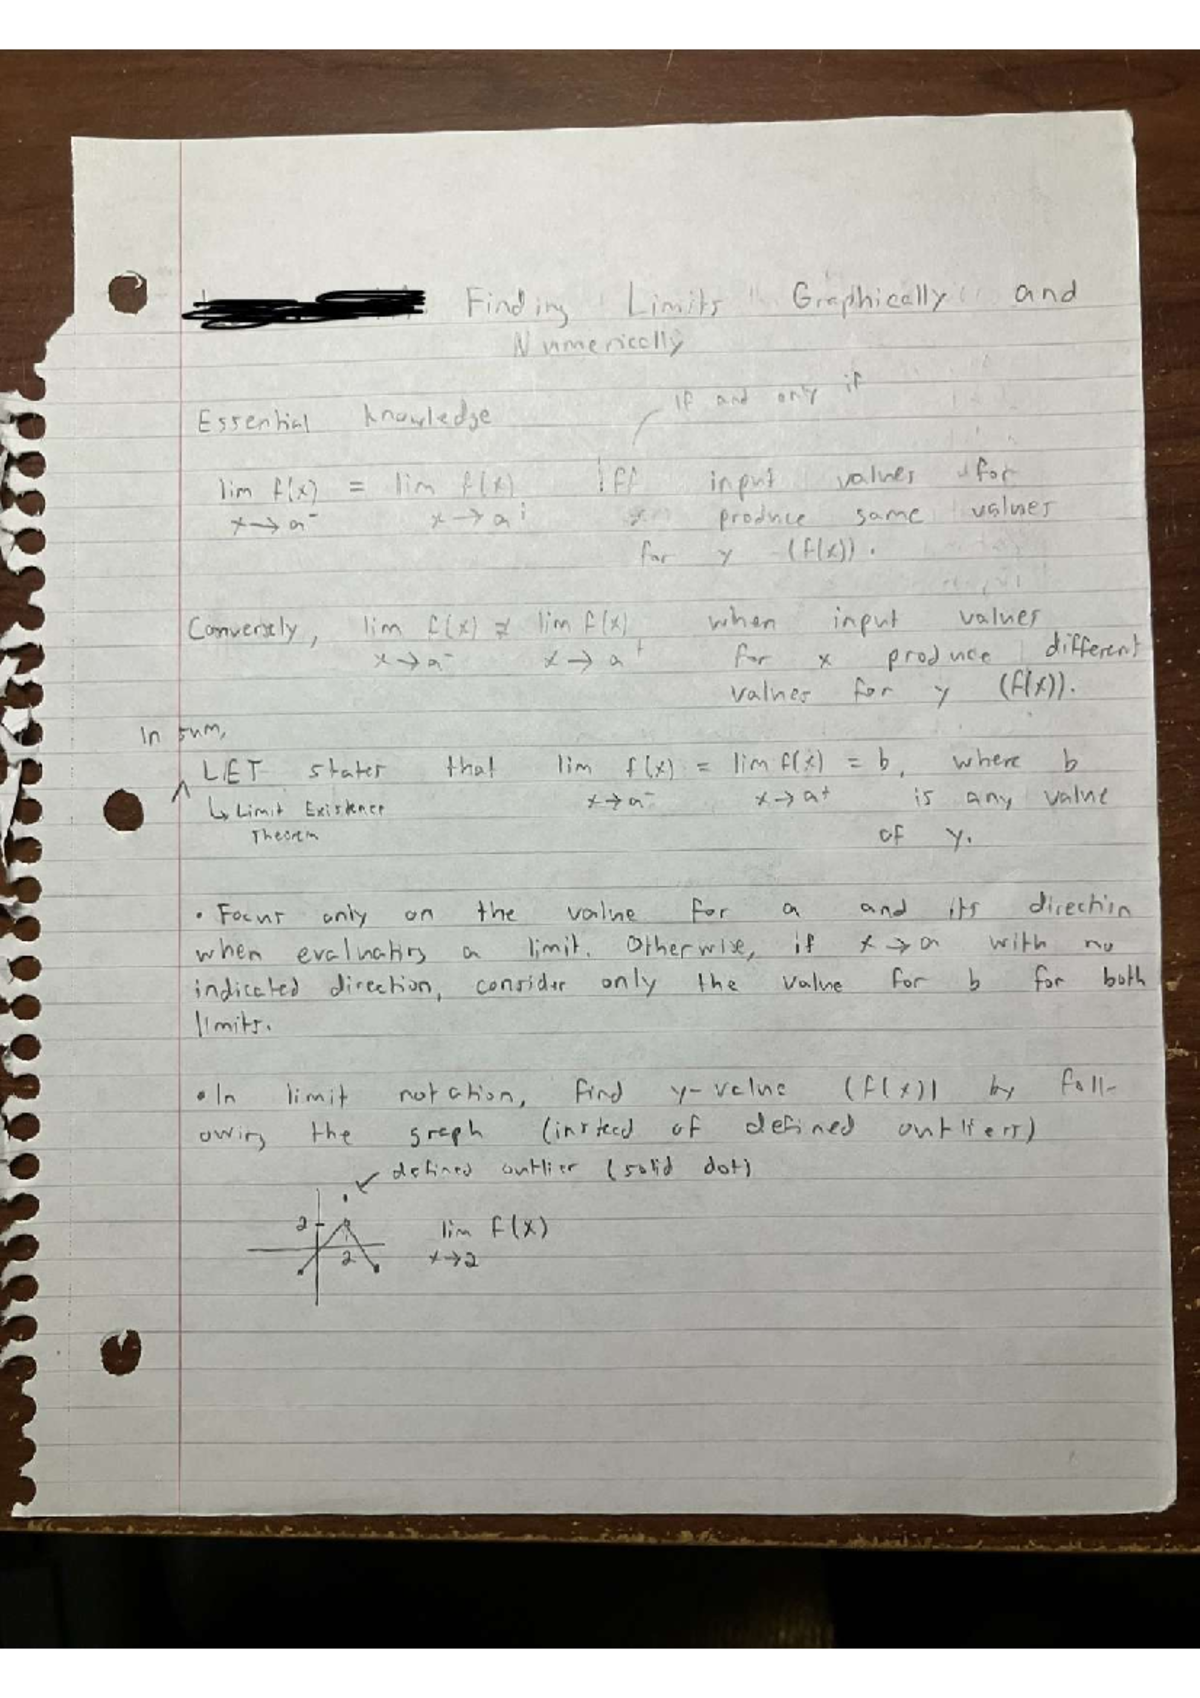 Finding Limits Graphically and
Numerically
if and only if
Essential knowledge
lim f(x) = lim f(x) iff input values for
x→a⁻ x→a⁺ x produce same values
for y (f(x)).
Conversely, lim f(x) ≠ lim f(x), when input values
x→a⁻ x→a⁺ for x produce different
values for y (f(x)).
In sum,
LET states that lim f(x) = lim f(x) = b, where b
^ ↳ Limit Existence x→a⁻ x→a⁺ is any value
Theorem of y.
• Focus only on the value for a and its direction
when evaluating a limit. Otherwise, if x→a with no
indicated direction, consider only the value for b for both
limits.
• In limit notation, find y-value (f(x)) by foll-
owing the graph (instead of defined outliers)
defined outlier (solid dot)
2 lim f(x)
2 x→2